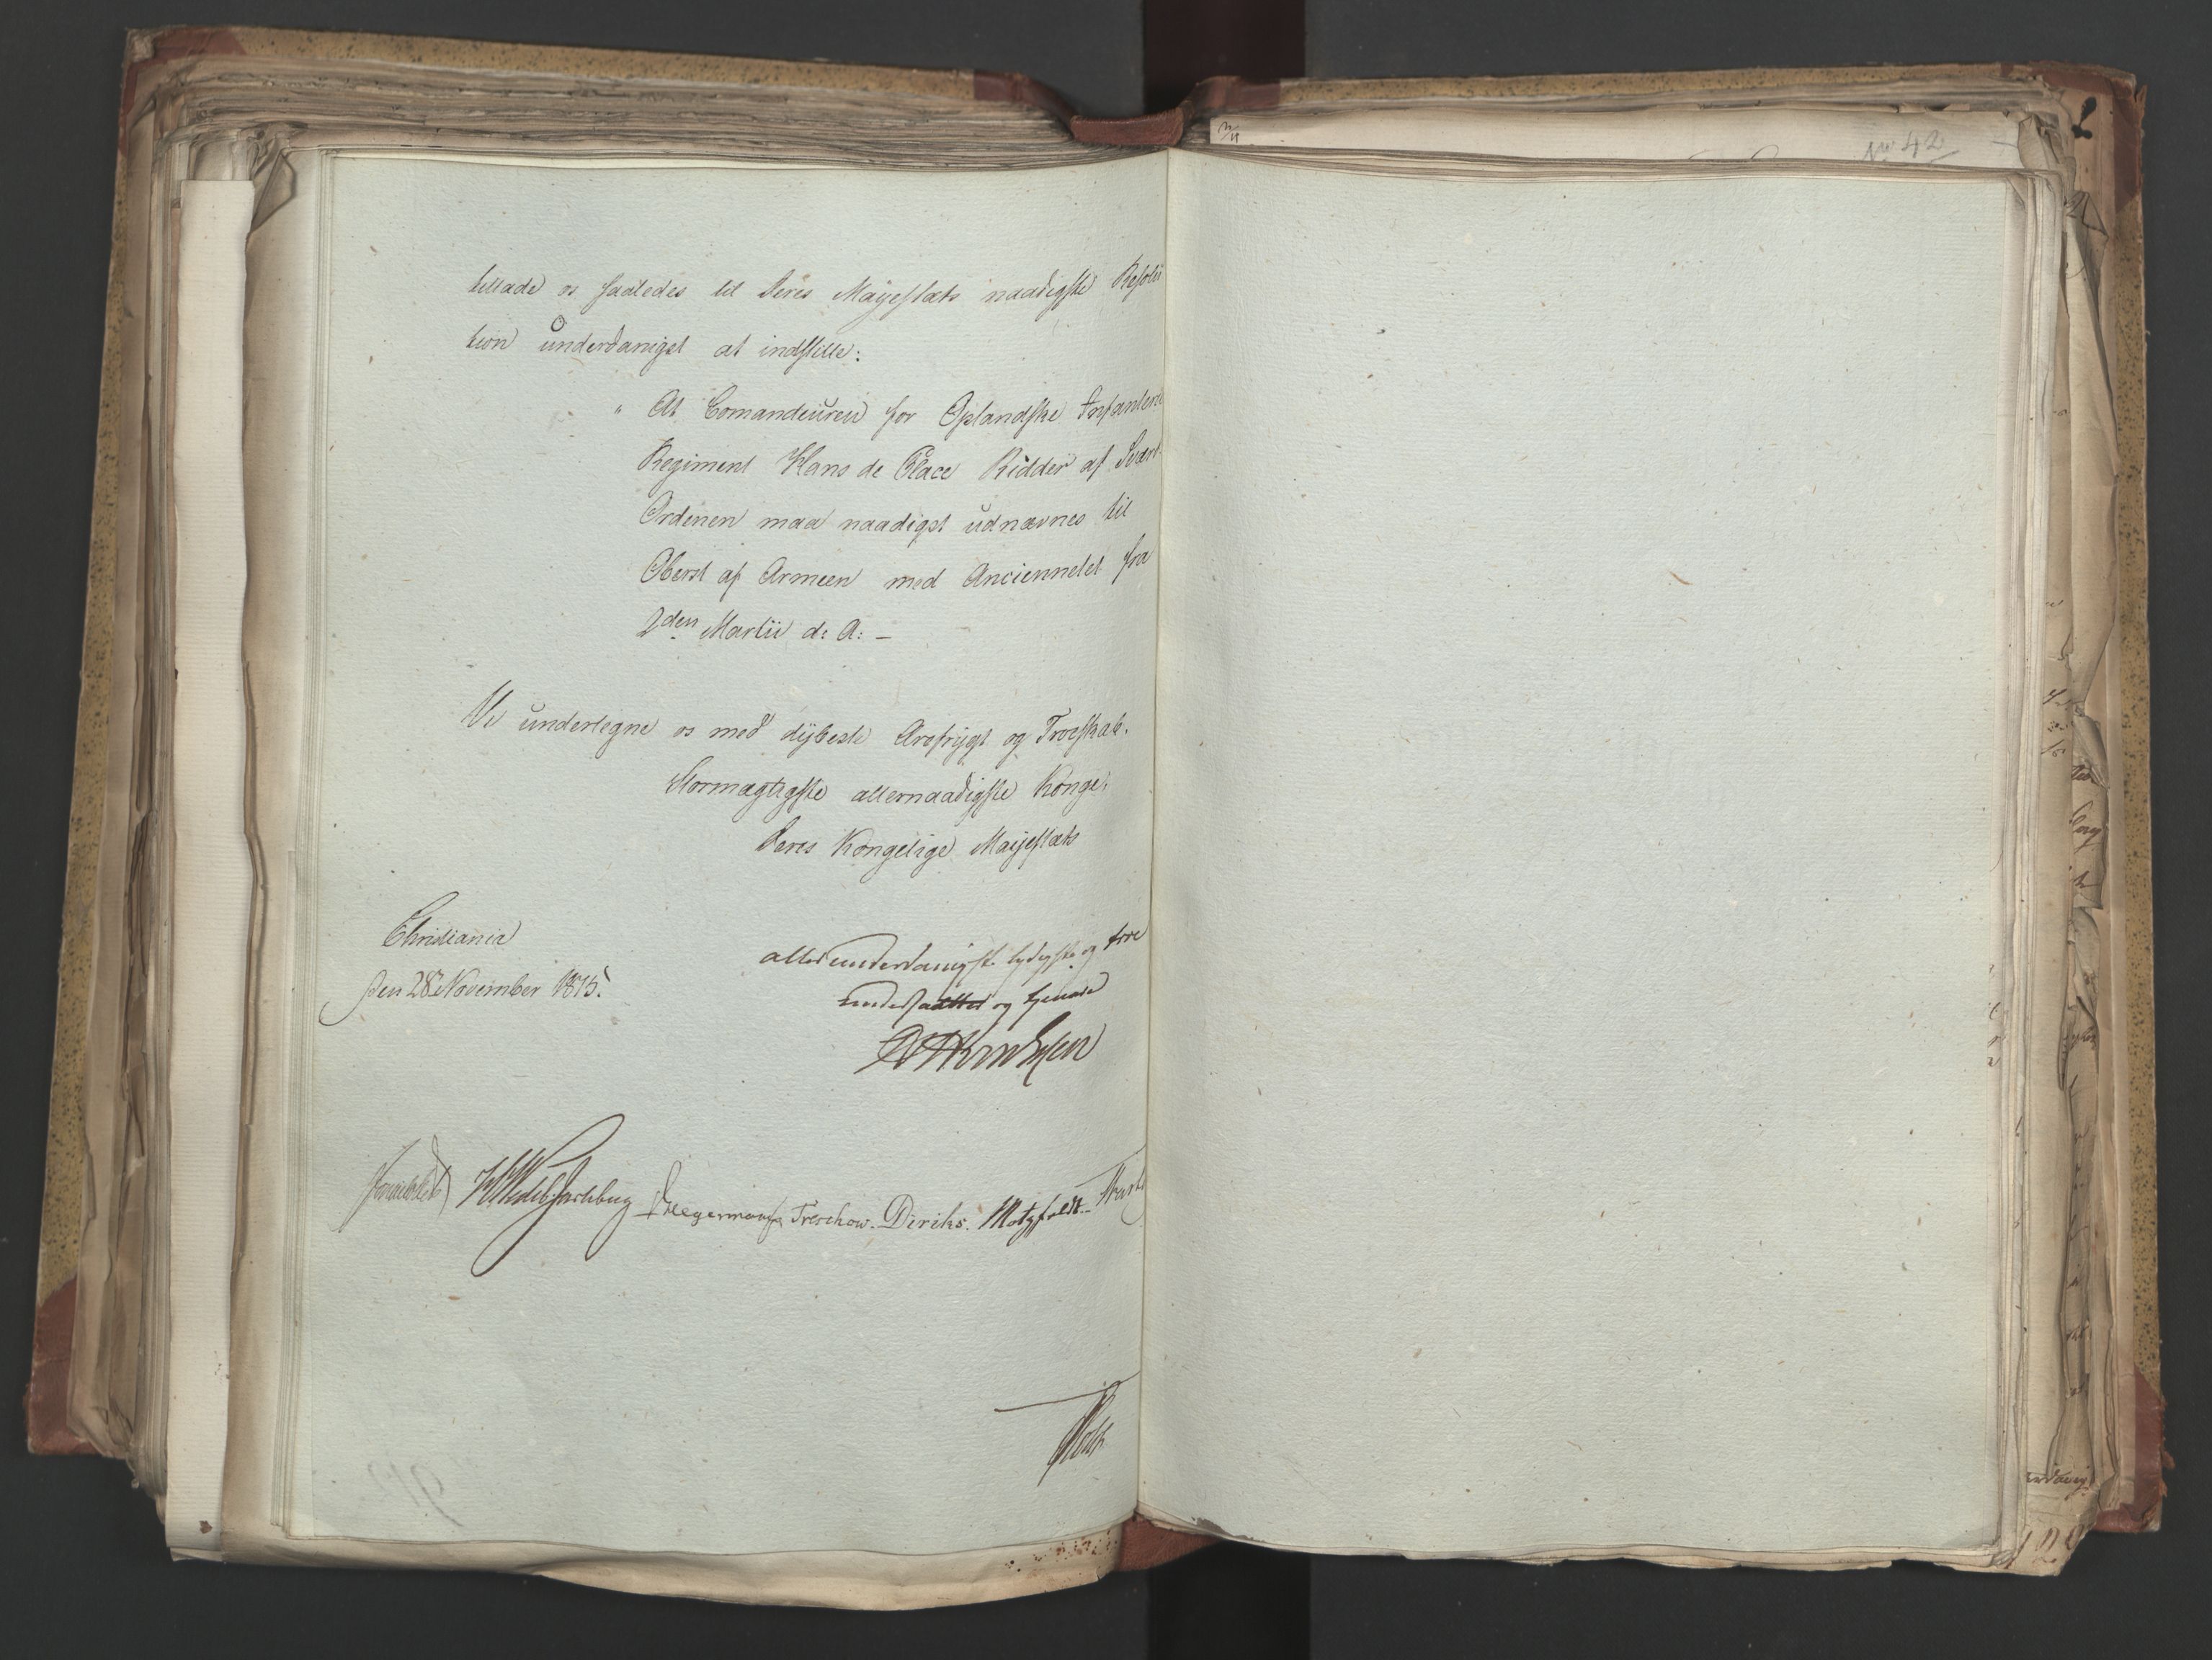 tillade os saaledes til Deres Majestæts naadigste Resolu
tion underdanigst at indstille:
" At Comandeuren for Oplandske Infanterie
Regiment Hans de Place Ridder af Sværd
Ordenen maa naadigst udnævnes til
Oberst af Armeen med Anciennetet fra
2den Martii d: A: –
Vi undertegne os med dybeste Ærefrygt og Troeskab.
Stormægtigste allernaadigste Konge!
Deres Kongelige Majestæts
Christiania
den 28 November 1815.
allerunderdanigste lydigste og troe
undersaatter og tjenere
Wedel Jarlsberg Treschow. Diriks. Motzfeldt
Holst
No 42